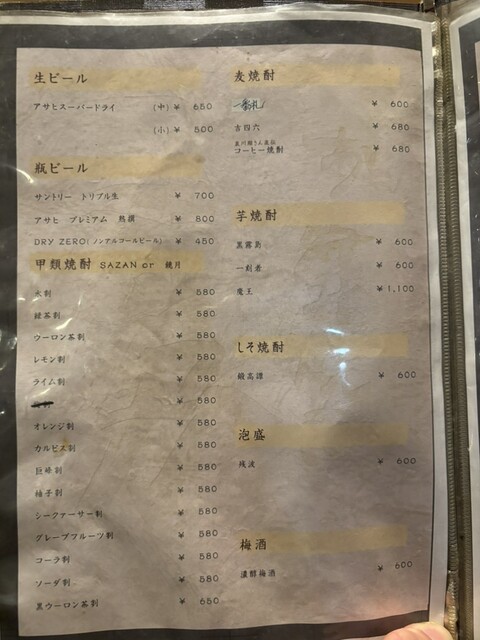 生ビール
アサヒスーパードライ (中) ¥ 650
(小) ¥ 500
瓶ビール
サントリー トリプル生 ¥ 700
アサヒ プレミアム 熟撰 ¥ 800
DRY ZERO(ノンアルコールビール) ¥ 450
甲類焼酎 SAZAN or 鏡月
水割 ¥ 580
緑茶割 ¥ 580
ウーロン茶割 ¥ 580
レモン割 ¥ 580
ライム割 ¥ 580
¥ 580
オレンジ割 ¥ 580
カルピス割 ¥ 580
巨峰割 ¥ 580
柚子割 ¥ 580
シークァーサー割 ¥ 580
グレープフルーツ割 ¥ 580
コーラ割 ¥ 580
ソーダ割 ¥ 580
黒ウーロン茶割 ¥ 650
麦焼酎
一番札 ¥ 600
吉四六 ¥ 680
コーヒー焼酎 ¥ 680
芋焼酎
黒霧島 ¥ 600
一刻者 ¥ 600
魔王 ¥ 1,100
しそ焼酎
鍛高譚 ¥ 600
泡盛
残波 ¥ 600
梅酒
濃醇梅酒 ¥ 600